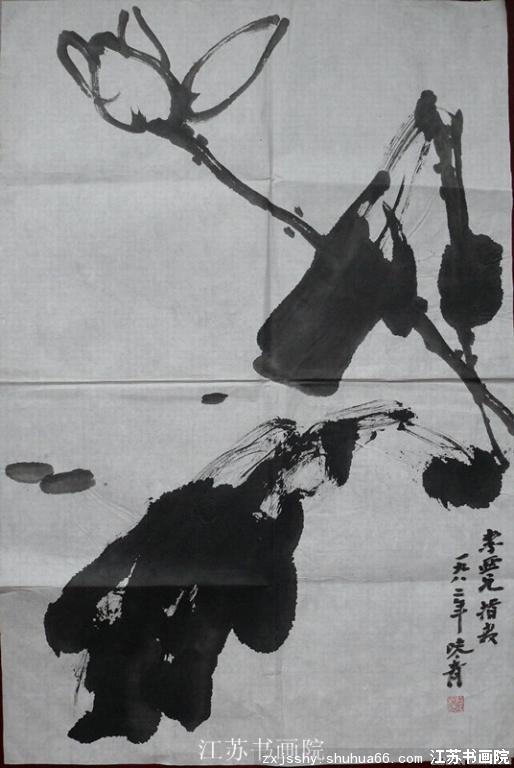 兄指教
一九八二年
江苏书画院
zxjsshy.shuhua66.com 江苏书画院